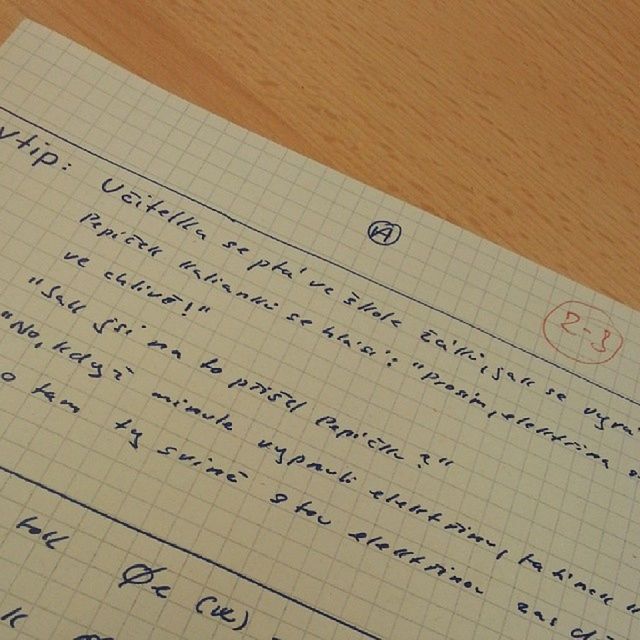 A
2-3
vtip: Učitelka se ptá ve škole žáků, jak se
Pepíček se hlásí: "Prosím, elektřina
ve chlívě!"
"Jak jsi na to přišel Pepíčku?"
"No, když minule vypnuli elektřinu, tatínek
tam ty svině s tou elektřinou zas
tok Φe (ve)